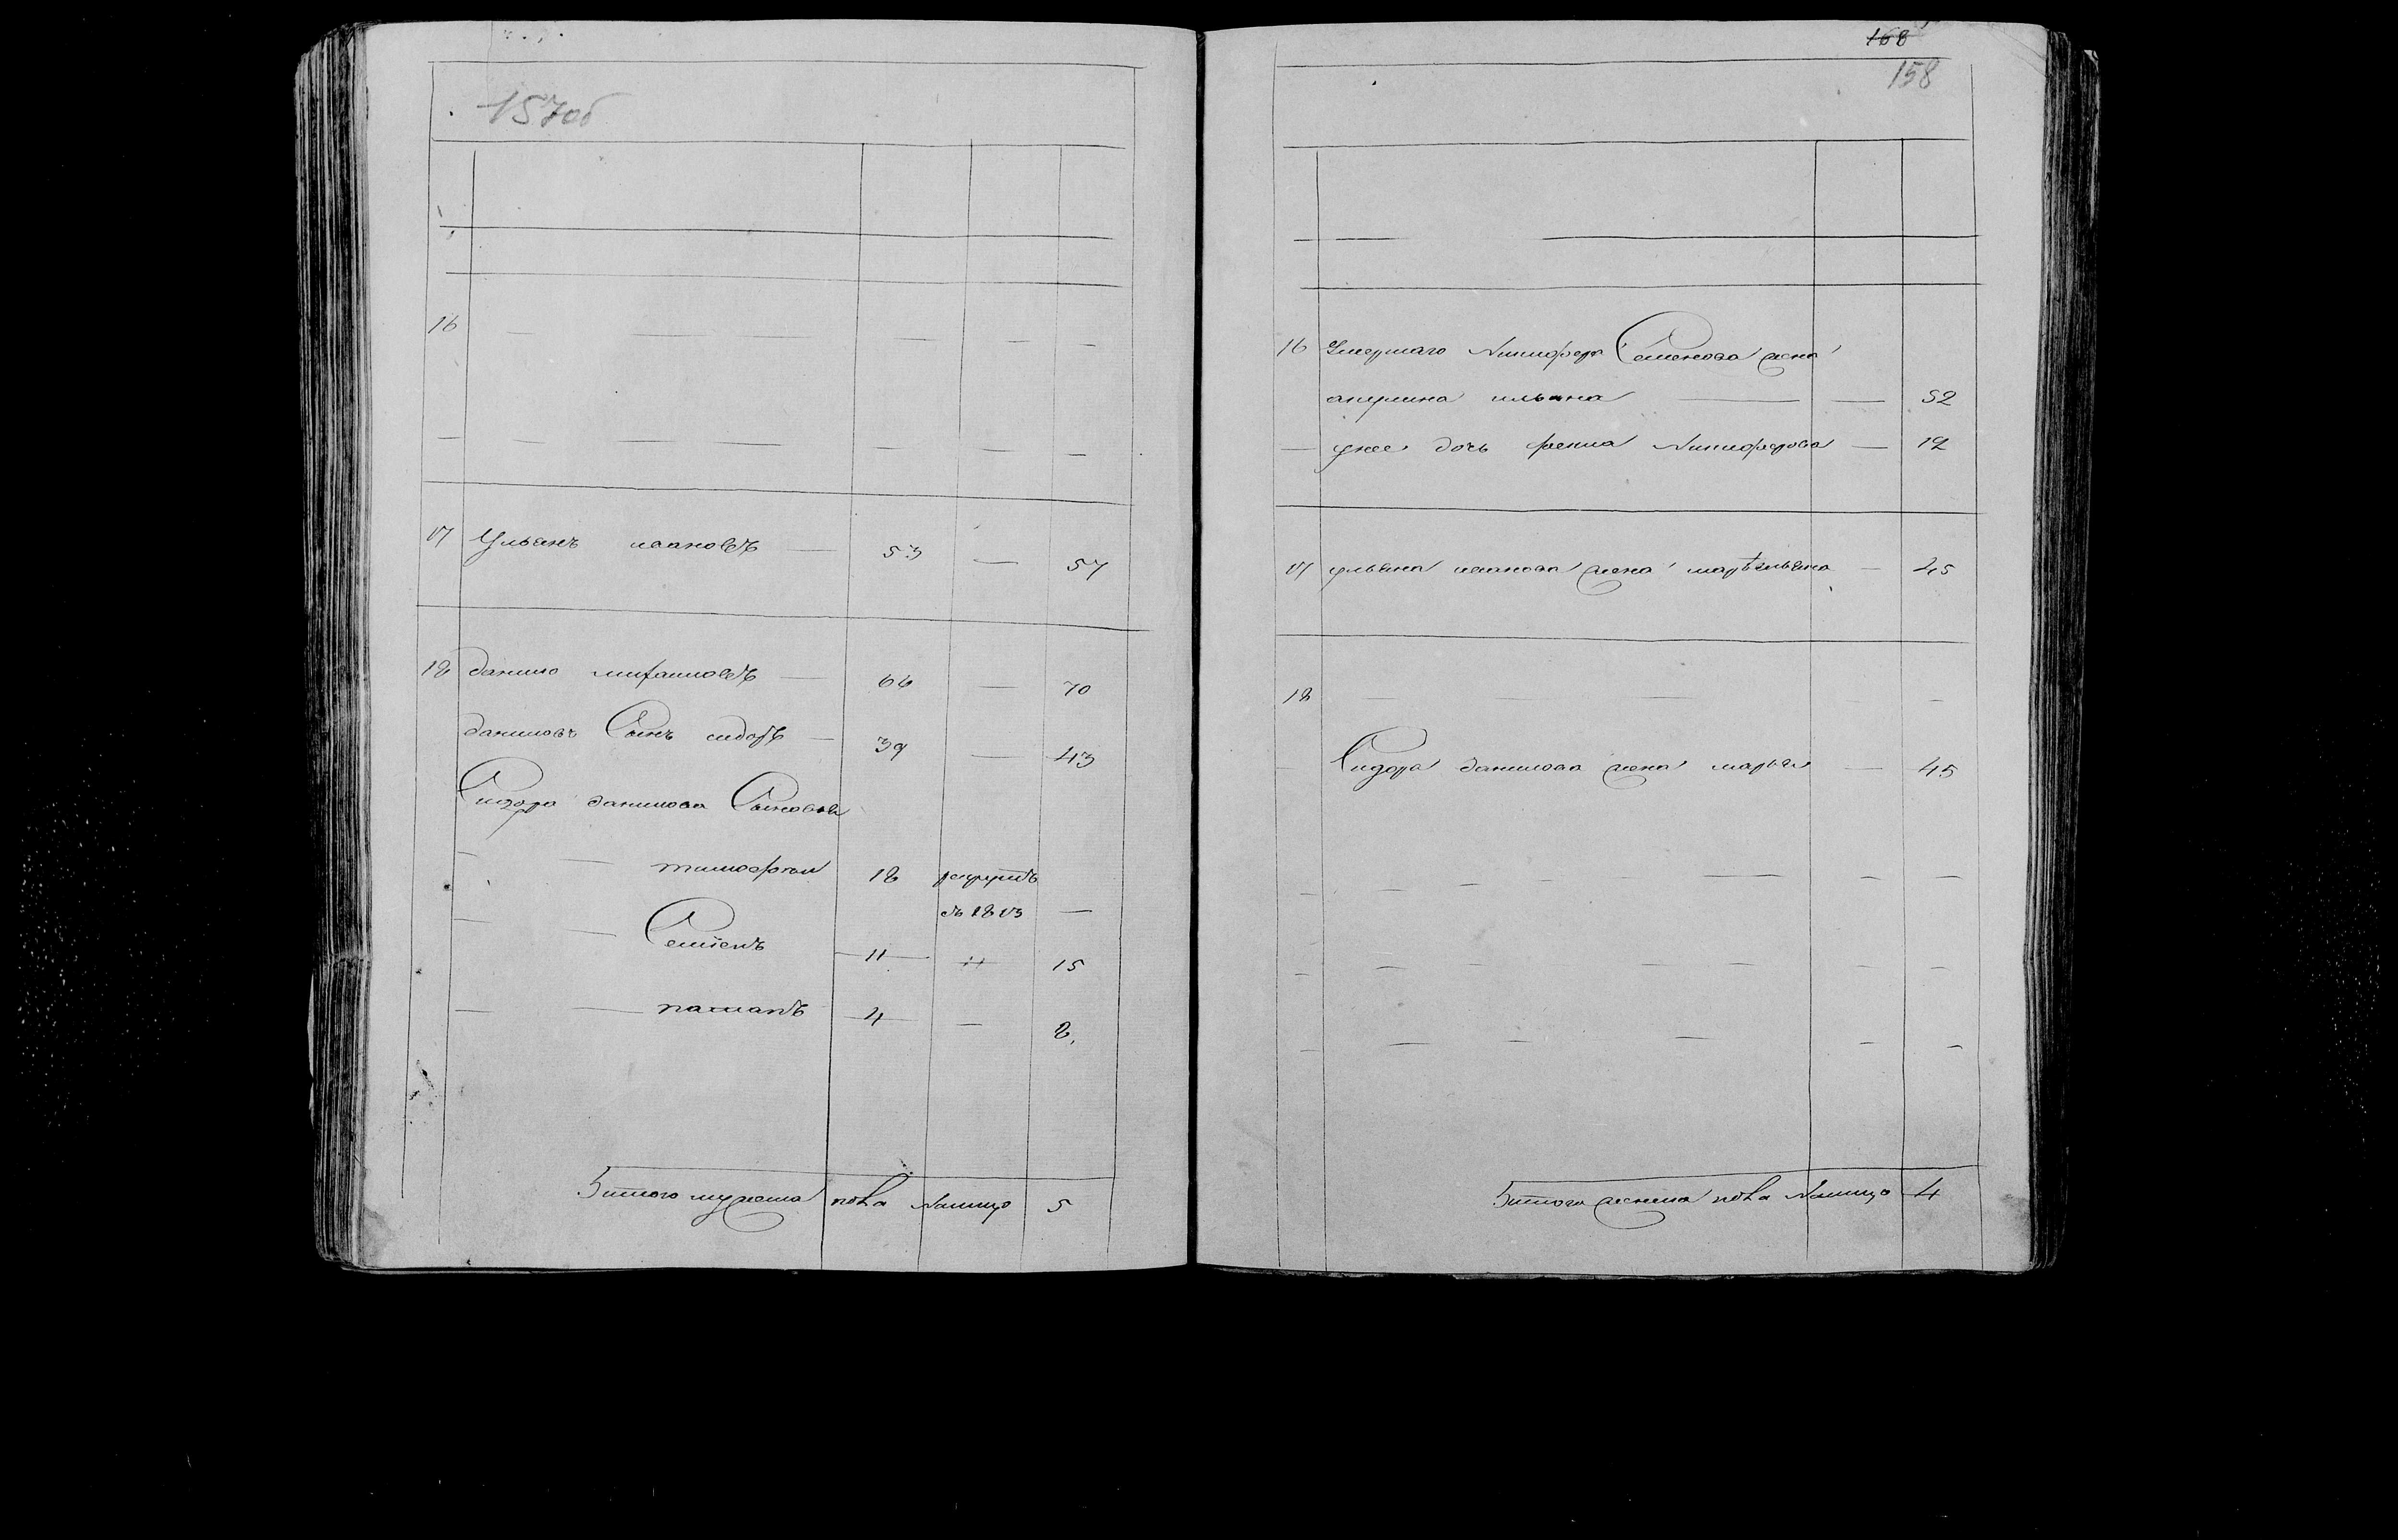 157об
16
17 Ульянъ ивановъ — 53 — 57
18 данило — 66 — 70
даниловъ Сынъ сидоръ — 39 — 43
Сидора данилова Сыновья
тимофей 18 рекрутъ
въ 1813 —
Семенъ 11 15
4 — 8
Итого мужеска пола налицо 5
168
158
16 Умершаго Никифора Семенова жена
акулина ильина — — 52
— унее дочь фекла Никифорова — 12
17 ульяна иванова жена — 45
18
Сидора данилова жена марья — 45
Итого женска пола налицо 4